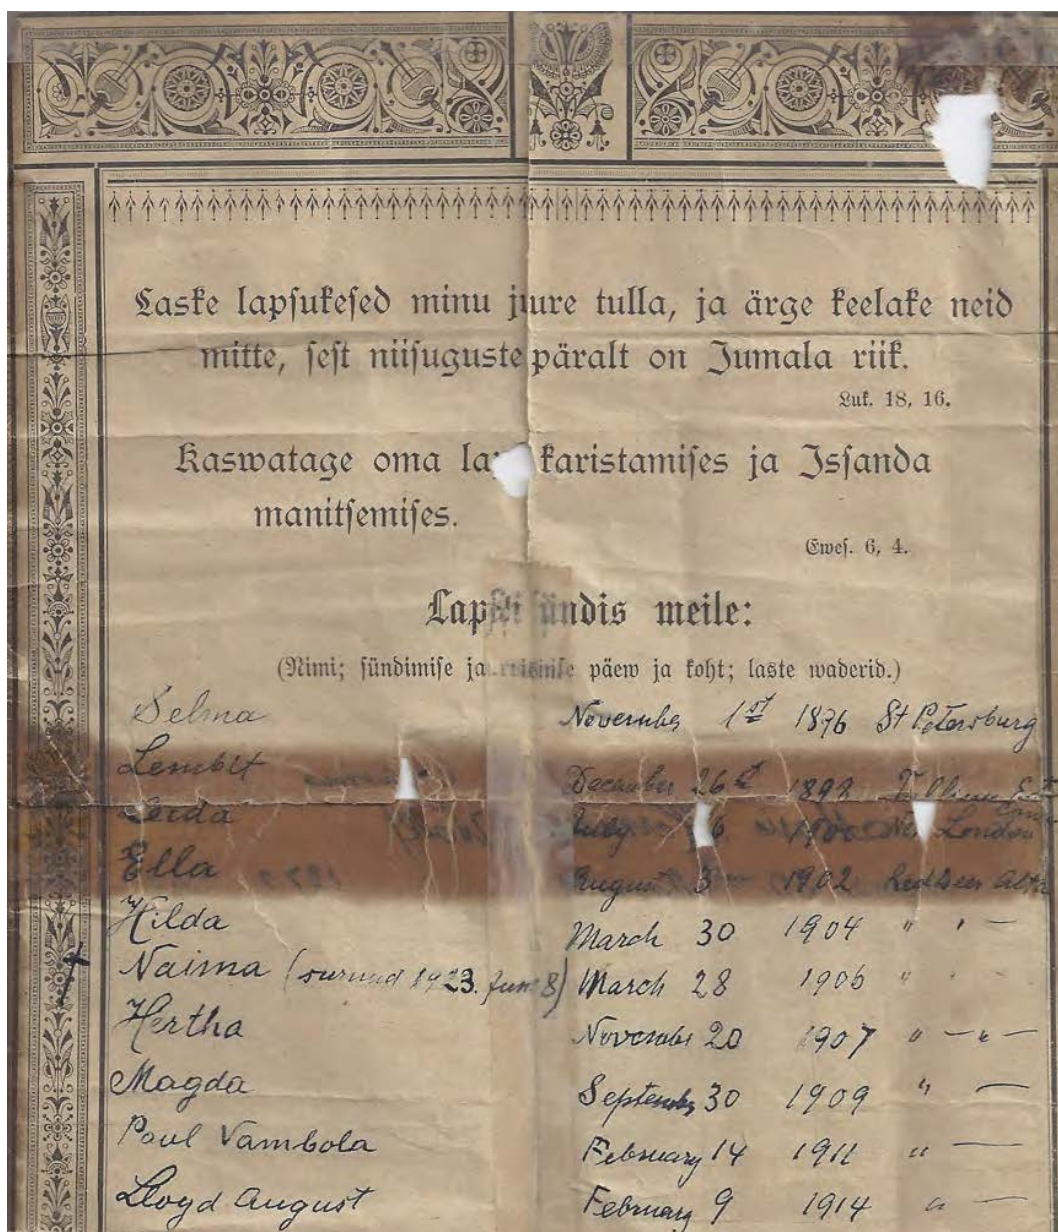 Laske lapsukesed minu juure tulla, ja ärge keelake neid
mitte, sest niisuguste päralt on Jumala riik.
Luk. 18, 16.
Kaswatage oma karistamises ja Issanda
manitsemises.
Ewes. 6, 4.
sündis meile:
(Nimi; sündimise ja päew ja koht; laste waderid.)
Selma November 1st 1896 St Petersburg
Lembit December 26 Tallinn
Leida July 6 1900 New London
Ella August 3 1902 Red Deer Alta
Hilda March 30 1904 " " —
Naima (surnud 1923. June 8) March 28 1906 " "
Hertha November 20 1907 " — " —
Magda September 30 1909 " —
Paul Vambola February 14 1911 " —
Lloyd August February 9 1914 " —